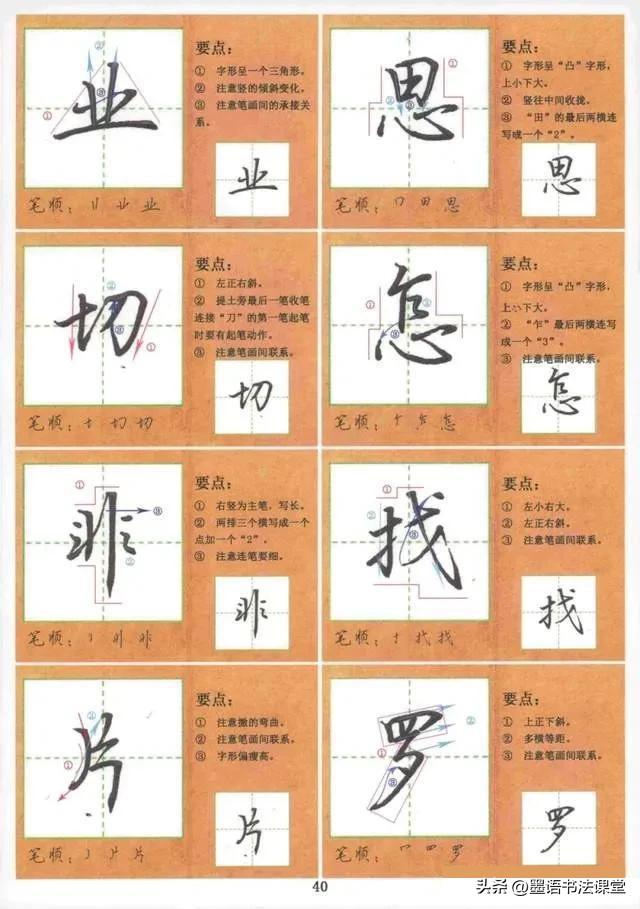 业
要点：
① 字形呈一个三角形。
② 注意竖的倾斜变化。
③ 注意笔画间的承接关
系。
业
笔顺：
业
思
要点：
① 字形呈“凸”字形，
上小下大。
② 竖往中间收拢。
③ “田”的最后两横连
写成一个“2”。
思
笔顺：
田 思
切
要点：
① 左正右斜。
② 提土旁最后一笔收笔
连接“刀”的第一笔起笔
时要有起笔动作。
③ 注意笔画间联系。
切
笔顺：
切 切
怎
要点：
① 字形呈“凸”字形，
上小下大。
② “乍”最后两横连写
成一个“3”。
③ 注意笔画间联系。
怎
笔顺：
怎
非
要点：
① 右竖为主笔，写长。
② 两排三个横写成一个
点加一个“2”。
③ 注意连笔要细。
非
笔顺：
非 非
找
要点：
① 左小右大。
② 左正右斜。
③ 注意笔画间联系。
找
笔顺：
找 找
片
要点：
① 注意撇的弯曲。
② 注意笔画间联系。
③ 字形偏瘦高。
片
笔顺：
片 片
罗
要点：
① 上正下斜。
② 多横等距。
③ 注意笔画间联系。
罗
笔顺：
罗
40
头条 @墨语书法课堂